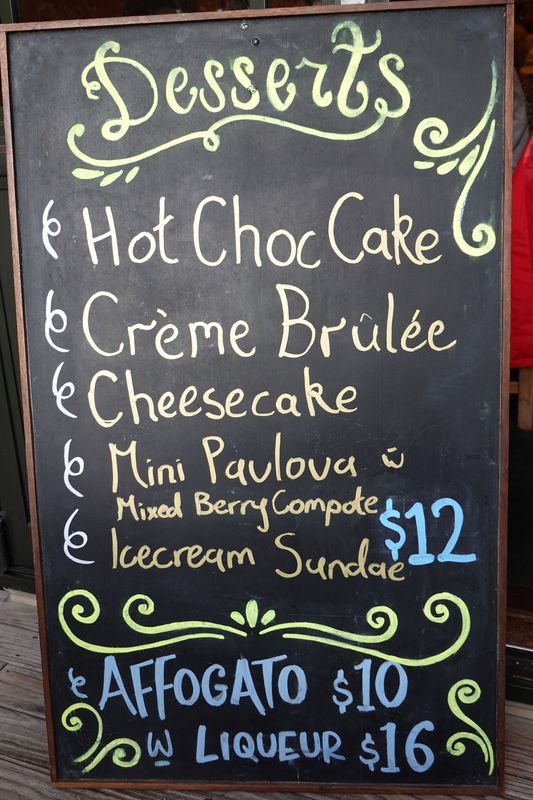 Desserts
Hot Choc Cake
Crème Brûlée
Cheesecake
Mini Pavlova w̄
Mixed Berry Compote
$12
Icecream Sundae
AFFOGATO $10
w LIQUEUR $16